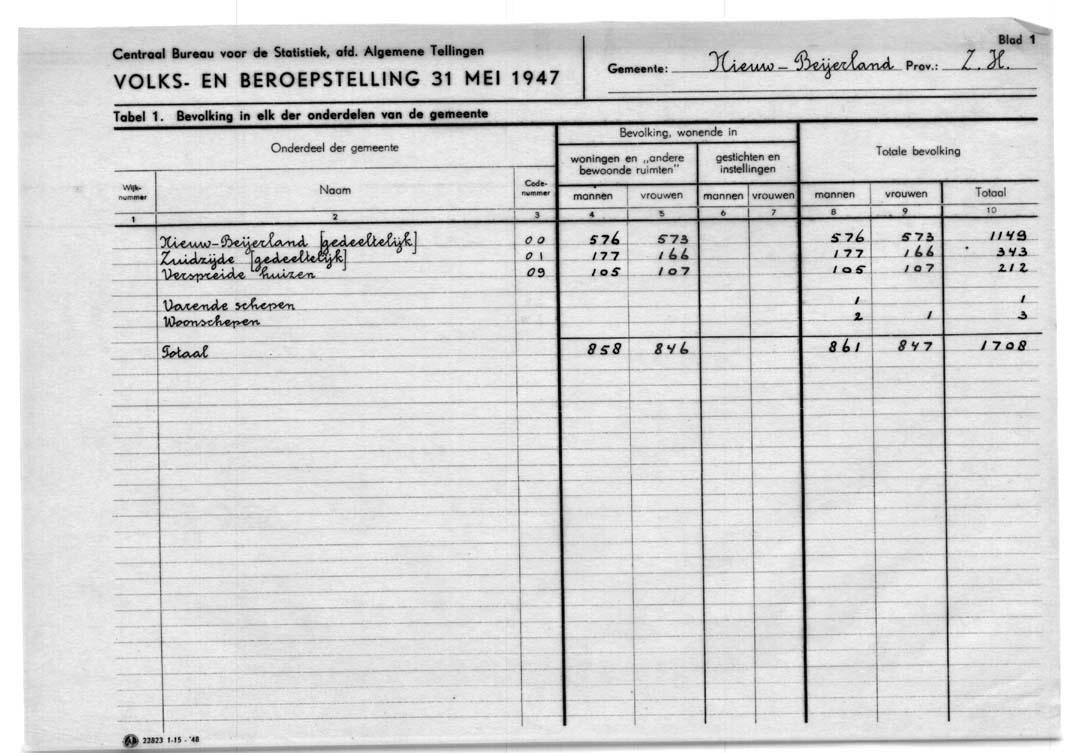 Blad 1
Centraal Bureau voor de Statistiek, afd. Algemene Tellingen
VOLKS- EN BEROEPSTELLING 31 MEI 1947
Gemeente: Nieuw-Beijerland Prov.: Z. H.
Tabel 1. Bevolking in elk der onderdelen van de gemeente
Onderdeel der gemeente
Bevolking, wonende in
Totale bevolking
woningen en „andere bewoonde ruimten"
gestichten en instellingen
Wijk-nummer Naam Code-nummer mannen vrouwen mannen vrouwen mannen vrouwen Totaal
1 2 3 4 5 6 7 8 9 10
Nieuw-Beijerland [gedeeltelijk] 00 576 573 576 573 1149
Zuidzijde [gedeeltelijk] 01 177 166 177 166 343
Verspreide huizen 09 105 107 105 107 212
Varende schepen 1 1
Woonschepen 2 1 3
Totaal 858 846 861 847 1708
22823 1-15 - '48